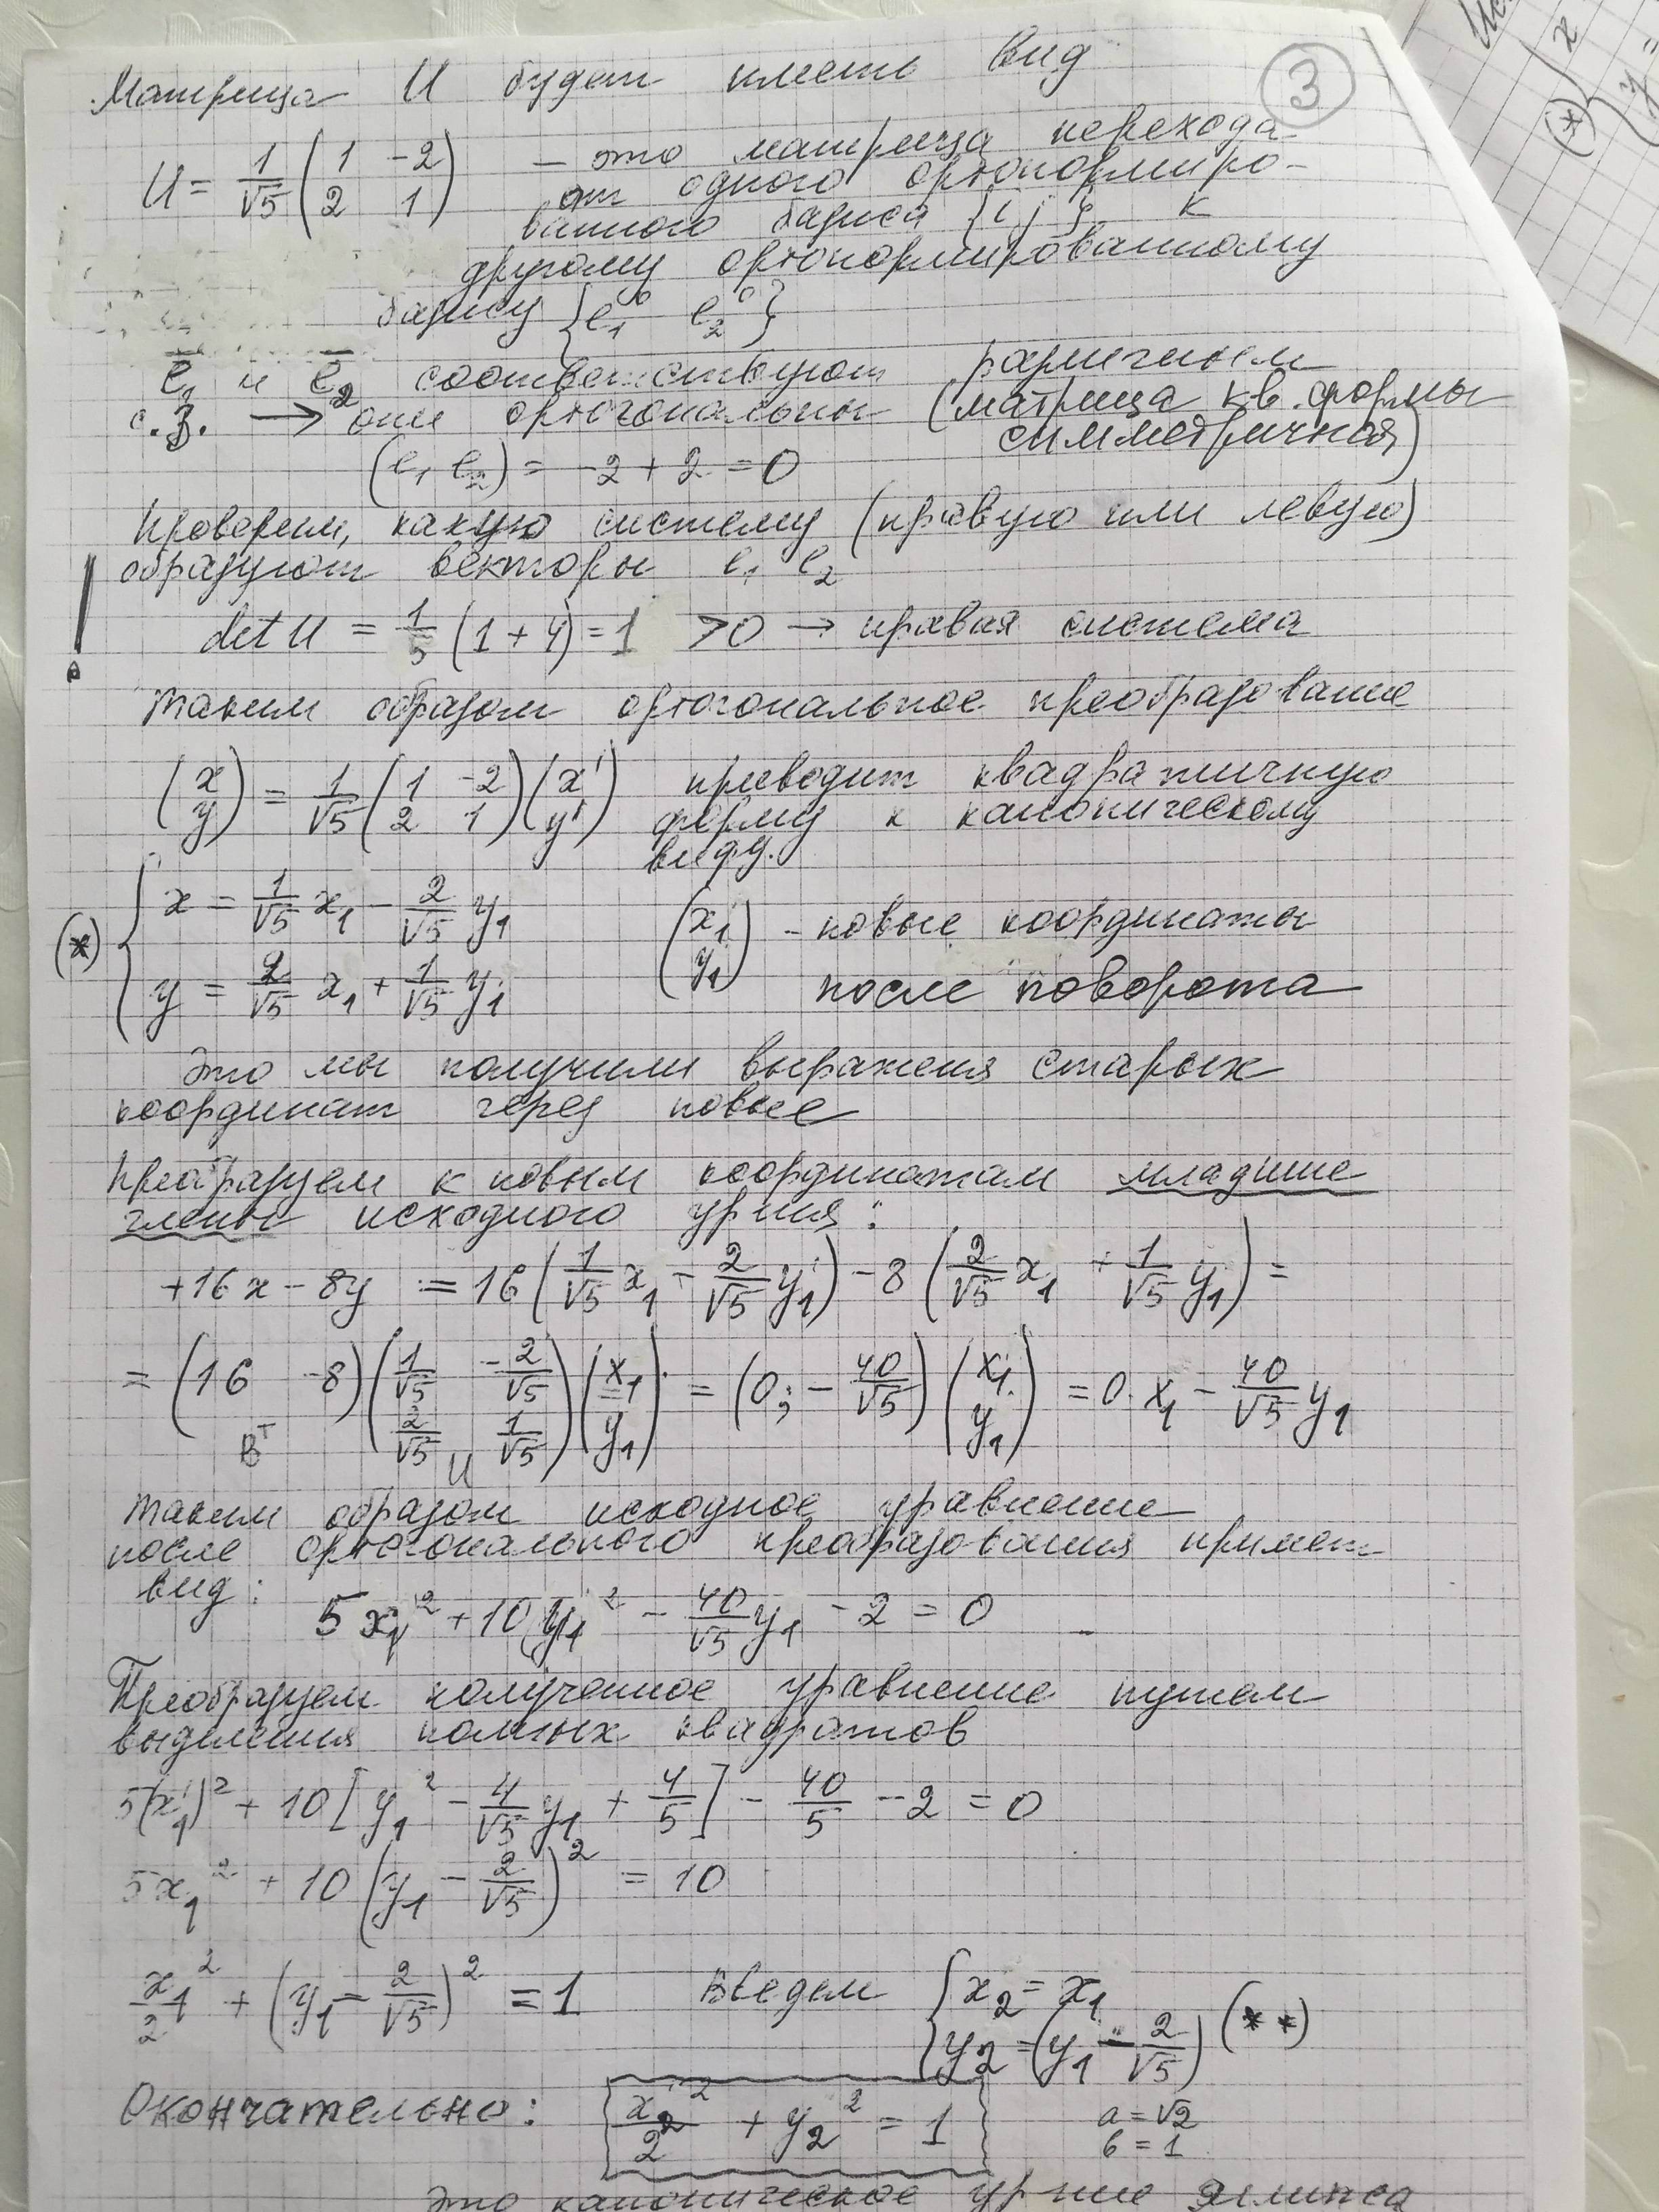 Матрица U будет иметь вид
3
U = 1/√5 (1 -2; 2 1) – это матрица перехода
от одного ортонормиро-
ванного базиса {i j} к
другому ортонормированному
базису {e₁⁰ e₂⁰}
e̅₁ и e̅₂ соответствуют различным
с.з. → они ортогональны (матрица кв. формы
симметричная)
(e₁ e₂) = -2 + 2 = 0
Проверим, какую систему (правую или левую)
образуют векторы e₁ e₂
det U = 1/5 (1 + 4) = 1 > 0 → правая система
Таким образом ортогональное преобразование
(x; y) = 1/√5 (1 -2; 2 1)(x'; y') приводит квадратичную
форму к каноническому
виду.
(*) { x = 1/√5 x₁ - 2/√5 y₁
y = 2/√5 x₁ + 1/√5 y₁
(x₁; y₁) - новые координаты
после поворота
Это мы получили выражения старых
координат через новые
Преобразуем к новым координатам младшие
члены исходного ур-ния:
+16x - 8y = 16(1/√5 x₁ - 2/√5 y₁) - 8(2/√5 x₁ + 1/√5 y₁) =
= (16 -8)(1/√5 -2/√5; 2/√5 1/√5)(x₁; y₁) = (0; -40/√5)(x₁; y₁) = 0·x₁ - 40/√5 y₁
Bᵀ U
Таким образом исходное уравнение
после ортогонального преобразования примет
вид:
5x₁² + 10y₁² - 40/√5 y₁ - 2 = 0
Преобразуем полученное уравнение путем
выделения полных квадратов
5(x₁)² + 10[y₁² - 4/√5 y₁ + 4/5] - 40/5 - 2 = 0
5x₁² + 10(y₁ - 2/√5)² = 10
x₁²/2 + (y₁ - 2/√5)² = 1 Введем { x₂ = x₁
y₂ = (y₁ - 2/√5) (**)
Окончательно: x₂²/2 + y₂² = 1
a = √2
b = 1
Это каноническое ур-ние эллипса
(*) { x
y =